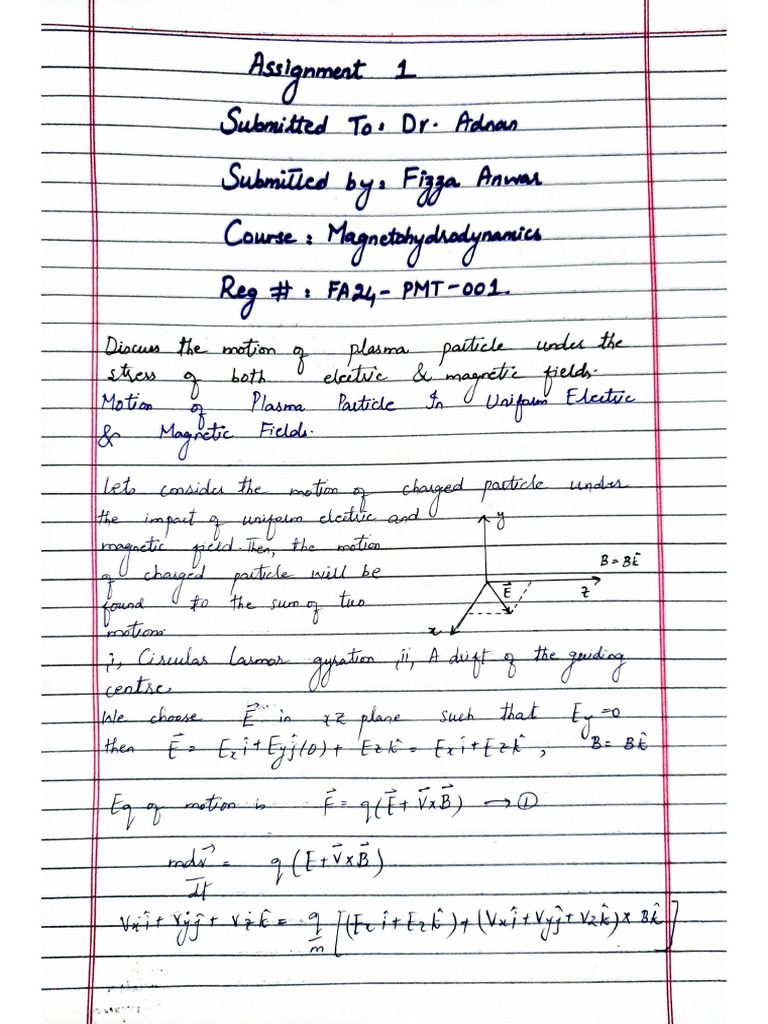 Assignment 1
Submitted To: Dr. Adnan
Submitted by: Fizza Anwar
Course: Magnetohydrodynamics
Reg #: FA24-PMT-001.
Discuss the motion of plasma particle under the
stress of both electric & magnetic fields.
Motion of Plasma Particle In Uniform Electric
& Magnetic Fields.
Lets consider the motion of charged particle under
the impact of uniform electric and
magnetic field. Then, the motion
of charged particle will be
found to the sum of two
motions.
y
B = Bk̂
E⃗
z
x
i, Circular Larmor gyration, ii, A drift of the guiding
centre.
We choose E⃗ in xz plane such that Ey=0
then E⃗ = Exî + Eyĵ(0) + Ezk̂ = Exî + Ezk̂, B = Bk̂
Eq of motion is F⃗ = q(E⃗ + V⃗×B⃗) → ①
mdv⃗/dt = q(E + V⃗×B⃗)
V̇xî + V̇yĵ + V̇zk̂ = q/m [(Exî + Ezk̂) + (Vxî + Vyĵ + Vzk̂) × Bk̂]